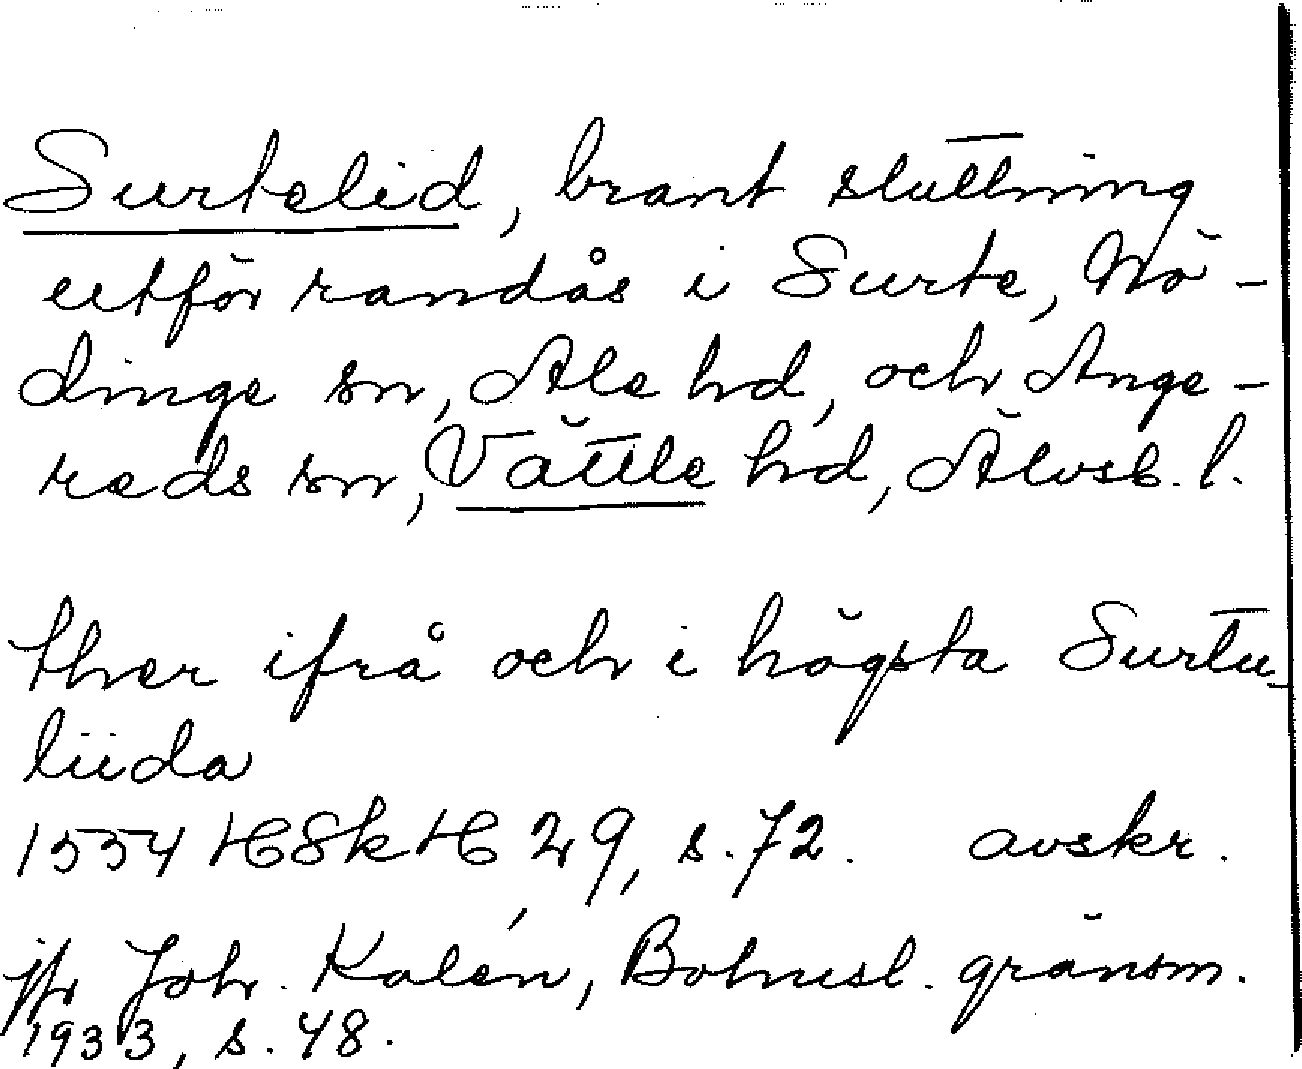 Surtelid, brant sluttning
utför randås i Surte, Nö-
dinge sn, Ale hd, och Ange-
reds sn, Vättle hd, Älvsb. l.
ther ifrå och i högsta Surtu-
liida
1554 HSkH 29, s. 72. avskr.
jfr Joh. Kalén, Bohusl. gränsm.
1933, s. 48.